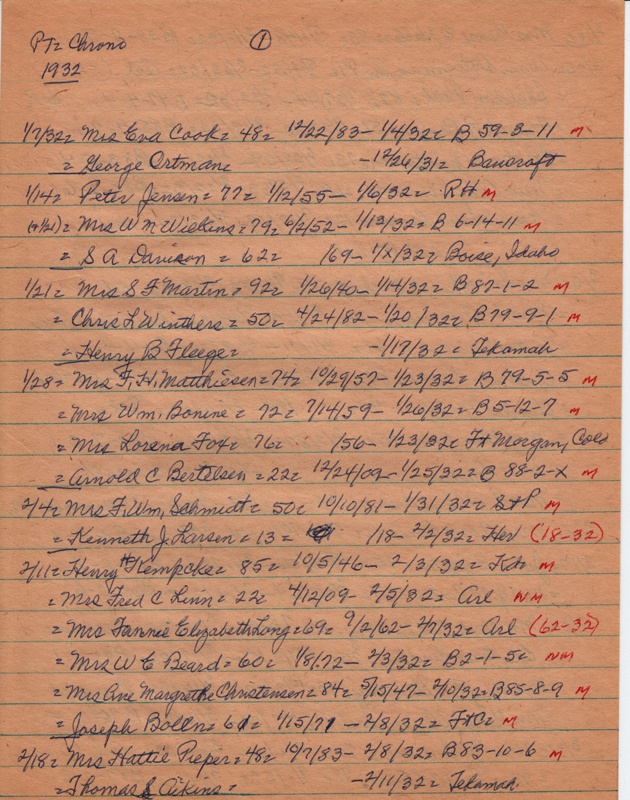 PT= Chrono ①
1932
1/7/32= Mrs Eva Cook= 48= 12/22/83- 1/4/32= B 59-3-11 M
= George Ortman= -12/26/31= Bancroft
1/14= Peter Jensen= 77= 1/12/55- 1/6/32= RH M
Mrs W M Wilkins= 79= 6/2/52- 1/13/32= B 6-14-11 M
= S A Davison = 62= /69- 1/x/32= Boise, Idaho
1/21= Mrs S F Martin= 92= 1/26/40- 1/14/32= B 87-1-2 M
= Chris L Winthers= 50= 4/24/82- 1/20/32= B 79-9-1 M
= Henry B Fleege= -1/17/32= Tekamah
1/28= Mrs F. H. Matthiesen= 74= 10/29/57- 1/23/32= B 79-5-5 M
= Mrs Wm. Bonine= 72= 7/14/59- 1/26/32= B 5-12-7 M
= Mrs Lorena Fox= 76= /56- 1/23/32= Ft Morgan, Colo
= Arnold C Bertelsen= 22= 12/24/09- 1/25/32= B 88-2-X M
2/4= Mrs F. Wm. Schmidt= 50= 10/10/81- 1/31/32= S+P M
= Kenneth J Larsen= 13= /18- 2/2/32= Her (18-32)
2/11= Henry H Kempcke= 85= 10/5/46- 2/3/32= M
= Mrs Fred C Linn= 22= 4/12/09- 2/5/32= Arl NM
= Mrs Fannie Elizabeth Long= 69= 9/2/62- 2/7/32= Arl (62-32)
= Mrs W E Beard= 60= 1/8/72- 2/3/32= B 2-1-5= NM
= Mrs Ane Margrethe Christensen= 84= 5/15/47- 2/10/32= B 85-8-9 M
= Joseph Bolln= 61= 1/15/71- 2/8/32= FtC= M
2/18= Mrs Hattie Pieper= 48= 10/7/83- 2/8/32= B 83-10-6 M
= Thomas S Aikins= -2/11/32= Tekamah